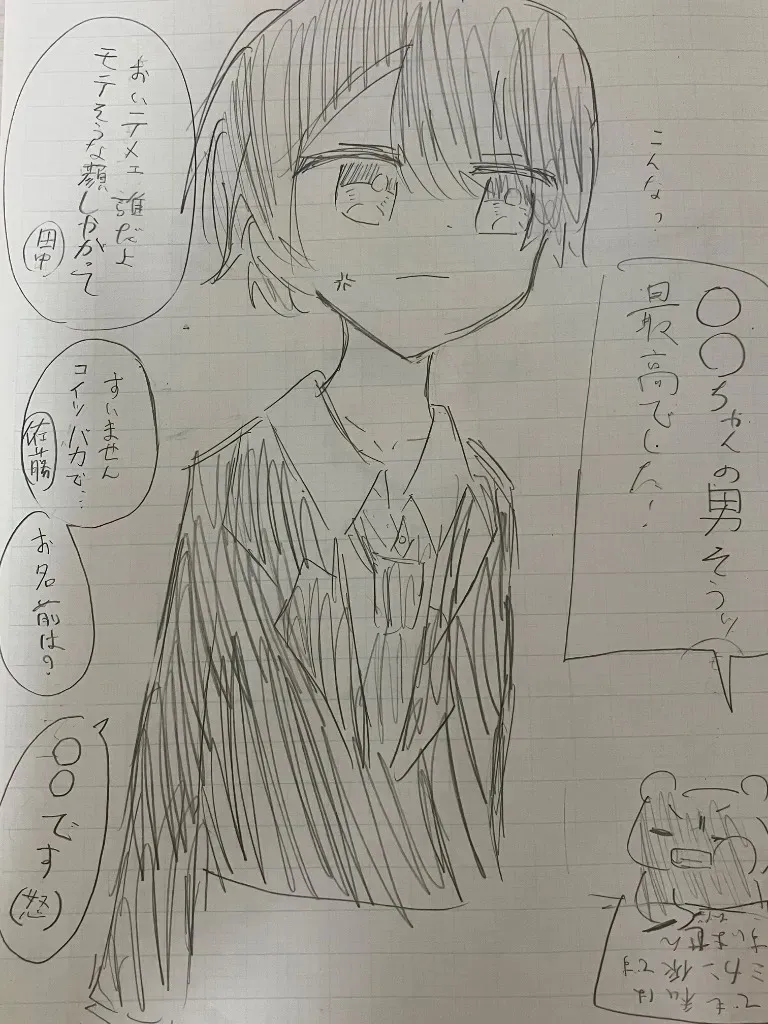 こんな?
○○ちゃんの男そうッ
最高でした!
おいテメェ誰だよ
モテそうな顔しやがって
田中
すいません
コイツバカで…
佐藤
お名前は?
○○です
(怒)
でも私は
ミカン派です
すいません